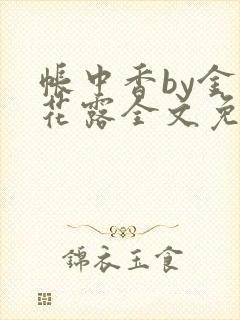 帐中香by金
花露全文免
錦衣玉食